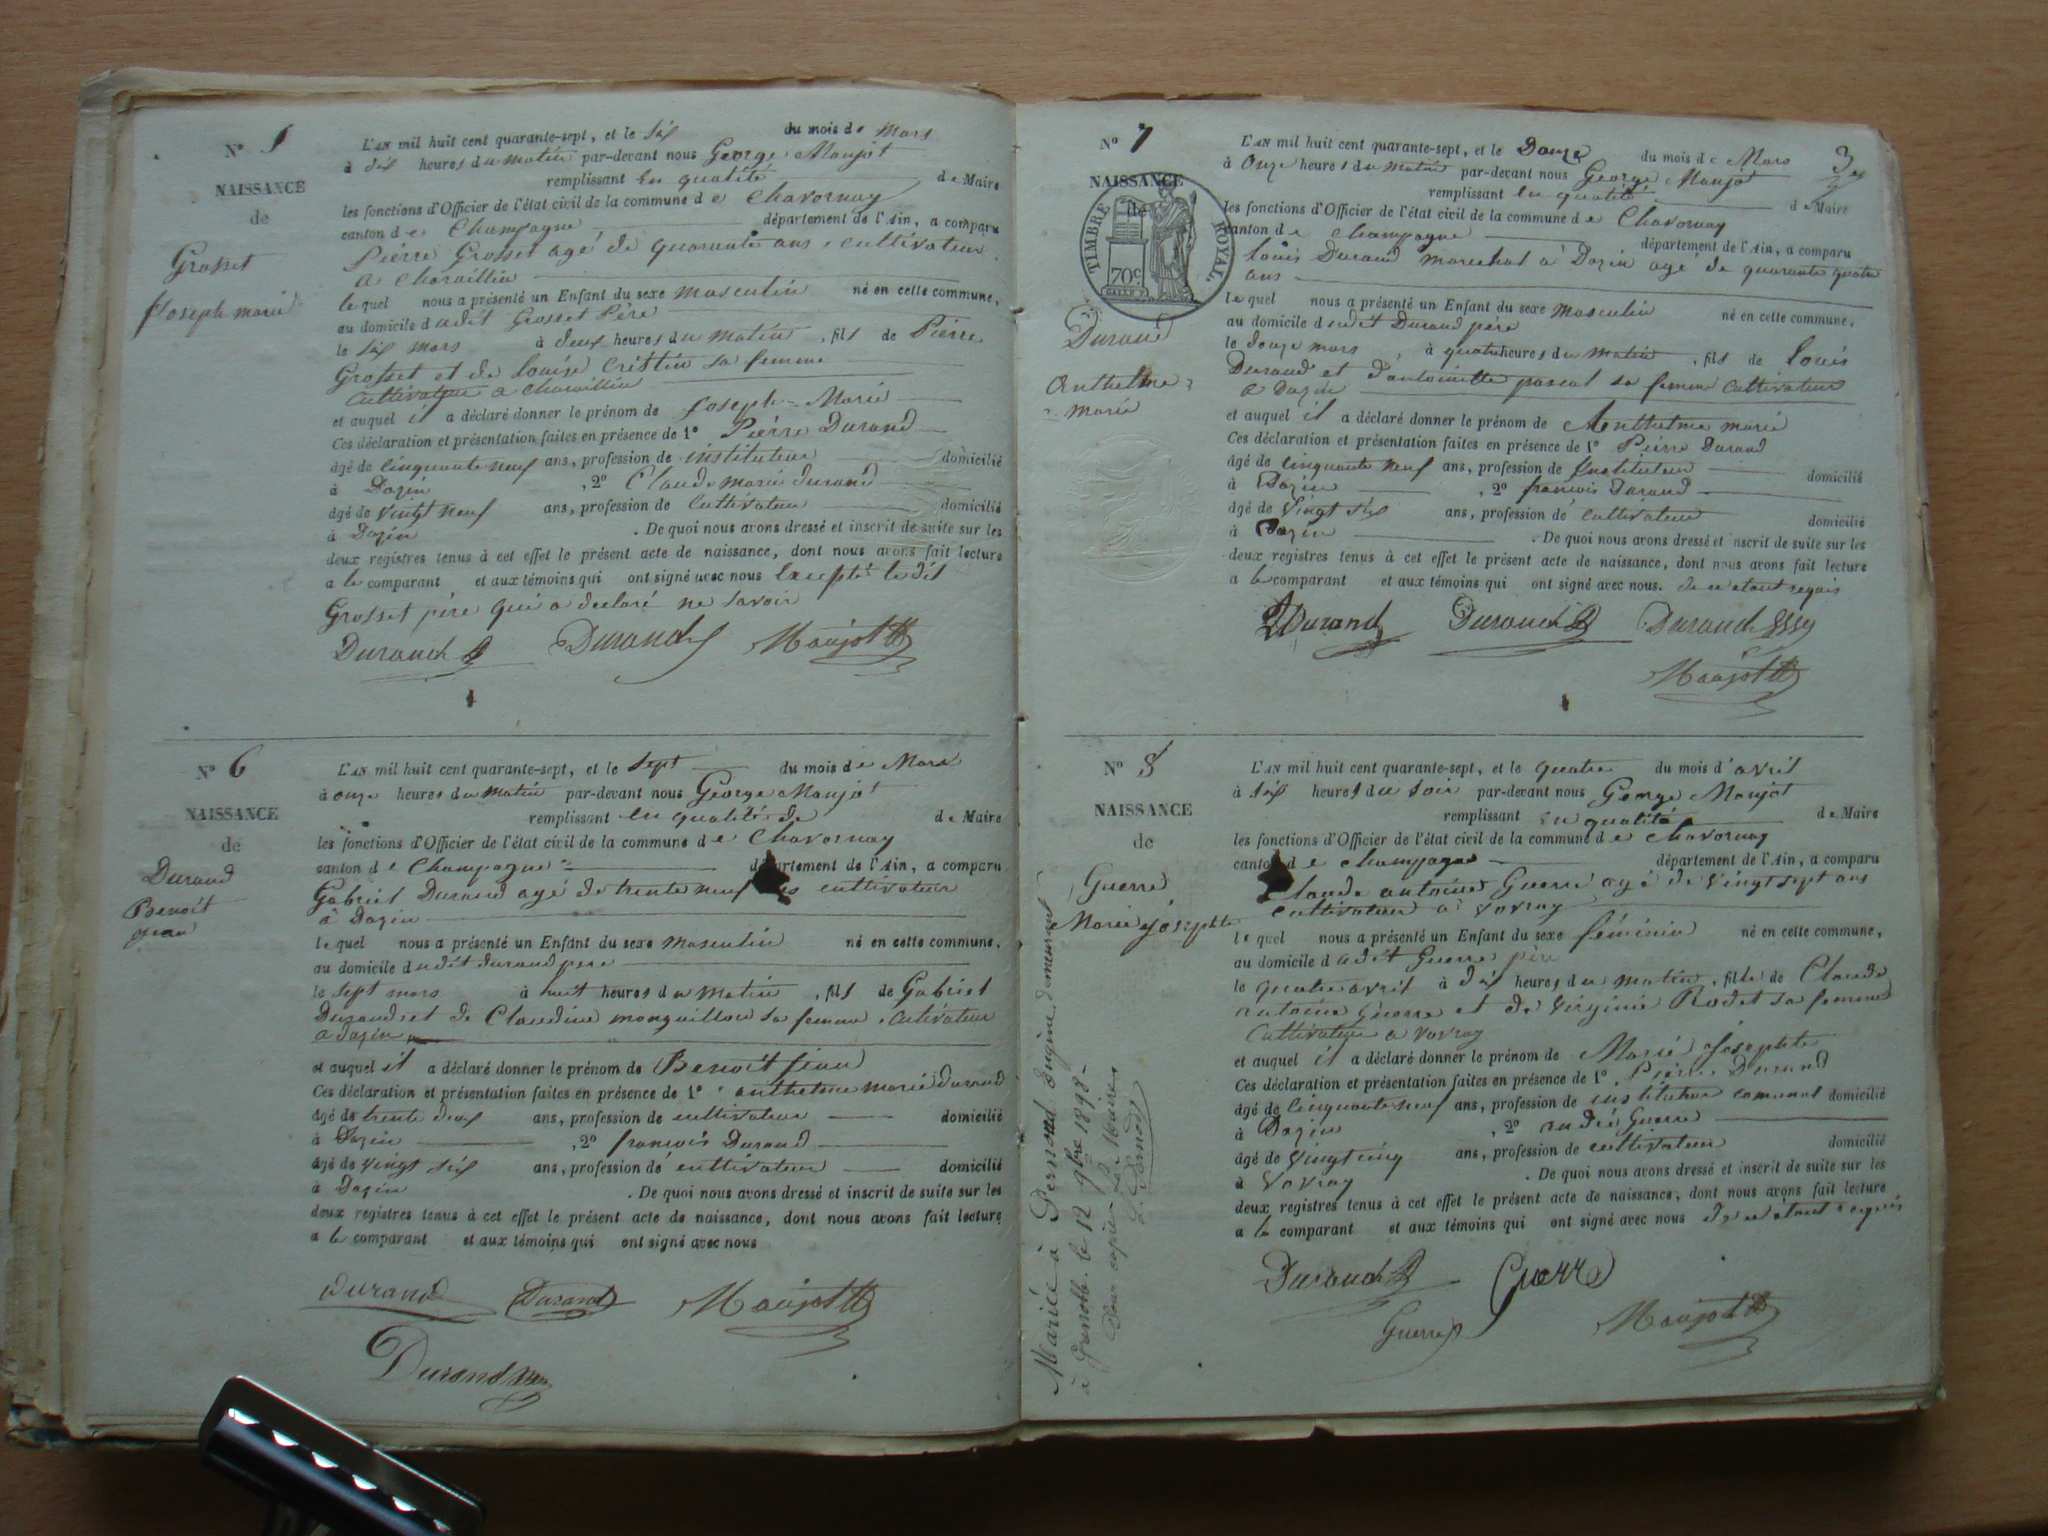 Nº 5
NAISSANCE
de
Grosset
Joseph marie
L'AN mil huit cent quarante-sept, et le six du mois de Mars
à dix heures du matin par-devant nous George Maujot
remplissant en qualité de Maire
les fonctions d'Officier de l'état civil de la commune de Chavornay
canton de Champagne département de l'Ain, a comparu
Pierre Grosset agé de quarante ans, cultivateur
a Charaillin
lequel nous a présenté un Enfant du sexe masculin né en cette commune,
au domicile dudit Grosset Père
le six mars à deux heures du matin, fils de Pierre
Grosset et de Louise Cristin sa femme
cultivateur a Charaillin
et auquel il a déclaré donner le prénom de Joseph-Marie
Ces déclaration et présentation faites en présence de 1º Pierre Durand
âgé de cinquante neuf ans, profession de instituteur domicilié
à Dazin, 2º Claude marie durand
âgé de vingt neuf ans, profession de cultivateur domicilié
à Dazin. De quoi nous avons dressé et inscrit de suite sur les
deux registres tenus à cet effet le présent acte de naissance, dont nous avons fait lecture
a le comparant et aux témoins qui ont signé avec nous Excepté le dit
Grosset père qui a declaré ne savoir
Durand Durand Maujot
Nº 6
NAISSANCE
de
Durand
Benoit
jean
L'AN mil huit cent quarante-sept, et le sept du mois de Mars
à onze heures du matin par-devant nous George Maujot
remplissant en qualité de de Maire
les fonctions d'Officier de l'état civil de la commune de Chavornay
canton de Champagne département de l'Ain, a comparu
Gabriel Durand agé de trente neuf ans cultivateur
à Dazin
lequel nous a présenté un Enfant du sexe masculin né en cette commune,
au domicile dudit durand pere
le sept mars à huit heures du matin, fils de Gabriel
Durand et de Claudine monguillon sa femme, cultivateur
a dazin
et auquel il a déclaré donner le prénom de Benoit jean
Ces déclaration et présentation faites en présence de 1º anthelme marie Durand
âgé de trente deux ans, profession de cultivateur domicilié
à Dazin, 2º françois Durand
âgé de vingt six ans, profession de cultivateur domicilié
à Dazin. De quoi nous avons dressé et inscrit de suite sur les
deux registres tenus à cet effet le présent acte de naissance, dont nous avons fait lecture
a le comparant et aux témoins qui ont signé avec nous
Durand Durand Maujot
Durand
3
Nº 7
NAISSANCE
de
TIMBRE ROYAL.
70c
Durand
Anthelme
marie
L'AN mil huit cent quarante-sept, et le Douze du mois de Mars
à Onze heures du matin par-devant nous George Maujot
remplissant en qualité de Maire
les fonctions d'Officier de l'état civil de la commune de Chavornay
canton de Champagne département de l'Ain, a comparu
Louis Durand marechal à Dazin agé de quarante quatre
ans
lequel nous a présenté un Enfant du sexe masculin né en cette commune,
au domicile dudit Durand père
le douze mars, à quatre heures du matin, fils de Louis
Durand et d'antoinette pascal sa femme cultivateur
a Dazin
et auquel il a déclaré donner le prénom de Anthelme marie
Ces déclaration et présentation faites en présence de 1º Pierre Durand
âgé de cinquante neuf ans, profession de instituteur domicilié
à Dazin, 2º françois Durand
âgé de vingt six ans, profession de cultivateur domicilié
à Dazin. De quoi nous avons dressé et inscrit de suite sur les
deux registres tenus à cet effet le présent acte de naissance, dont nous avons fait lecture
a le comparant et aux témoins qui ont signé avec nous. de ce etant requis
Durand Durand Durand
Maujot
Nº 8
NAISSANCE
de
Guerre
Marie josephte
L'AN mil huit cent quarante-sept, et le quatre du mois d'avril
à six heures du soir par-devant nous George Maujot
remplissant en qualité de Maire
les fonctions d'Officier de l'état civil de la commune de Chavornay
canton de Champagne département de l'Ain, a comparu
Claude antoine Guerre agé de vingt sept ans
cultivateur a vovray
lequel nous a présenté un Enfant du sexe féminin né en cette commune,
au domicile dudit Guerre père
le quatre avril à dix heures du matin, fille de Claude
antoine Guerre et de virginie Rodet sa femme
cultivateur a vovray
et auquel il a déclaré donner le prénom de Marie Josephte
Ces déclaration et présentation faites en présence de 1º Pierre Durand
âgé de cinquante neuf ans, profession de instituteur communal domicilié
à Dazin, 2º andré Guerre
âgé de vingt cinq ans, profession de cultivateur domicilié
à Vovray. De quoi nous avons dressé et inscrit de suite sur les
deux registres tenus à cet effet le présent acte de naissance, dont nous avons fait lecture
a le comparant et aux témoins qui ont signé avec nous de ce etant requis
Durand Guerre
Guerre Maujot
Mariée à Pernoud Eugène demeurant
à Grenoble le 12 9bre 1898.
Pour copie Le Maire